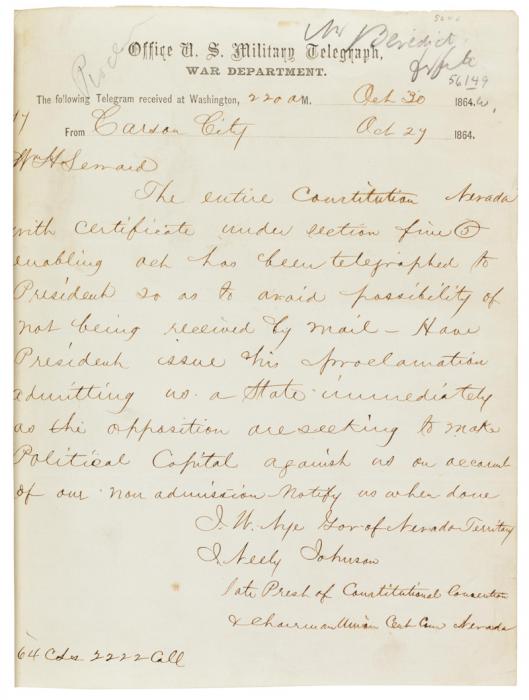 Mr Benedict
Office U. S. Military Telegraph,
WAR DEPARTMENT.
56149
The following Telegram received at Washington, 2 20 a M. Oct 30 1864.
17
From Carson City Oct 29 1864.
Wm H Seward
The entire Constitution Nevada
with certificate under section five 5
enabling act has been telegraphed to
President so as to avoid possibility of
not being received by mail - Have
President issue his proclamation
admitting us a State immediately
as the opposition are seeking to make
Political Capital against us on account
of our non admission Notify us when done
J. W. Nye Gov of Nevada Territory
J. Neely Johnson
late Prest of Constitutional Convention
& Chairman Union Cent Com Nevada
64 Cols 2222 Call